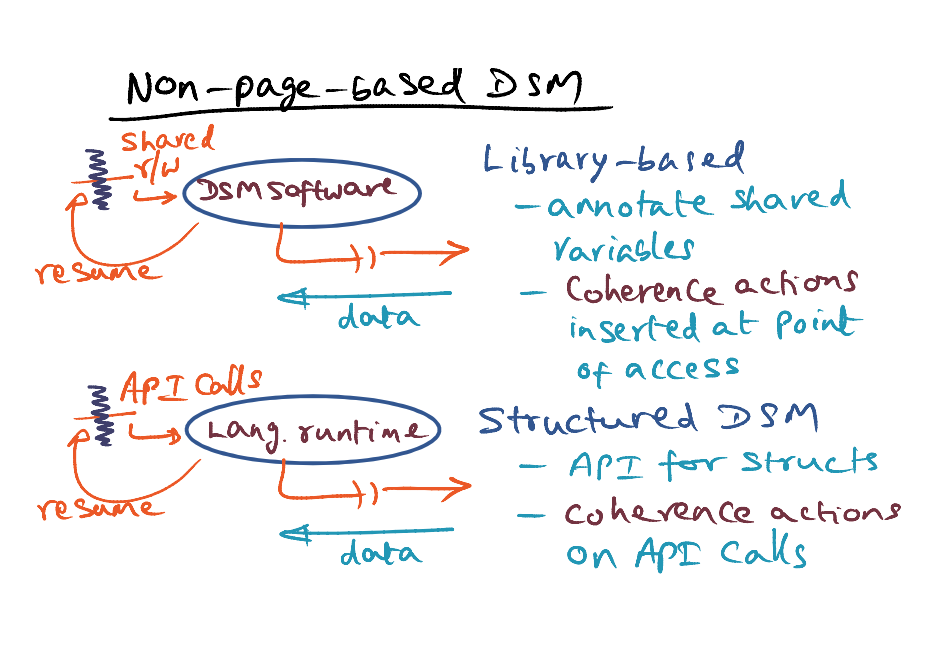 Non-page-based DSM
shared
r/w
DSM software
resume
data
Library-based
- annotate shared
variables
- Coherence actions
inserted at point
of access
API Calls
Lang. runtime
resume
data
Structured DSM
- API for structs
- Coherence actions
on API Calls